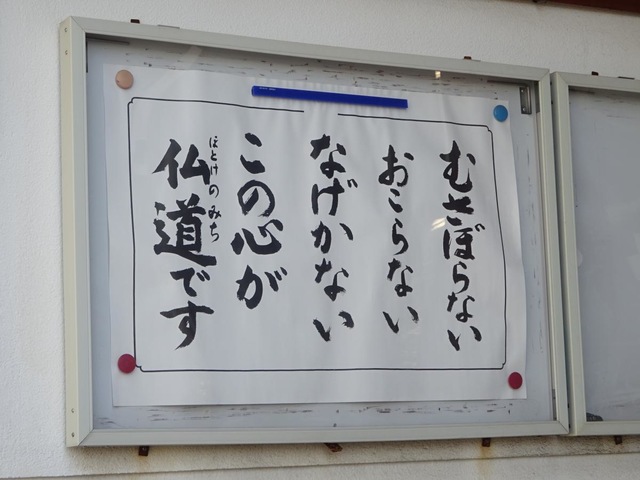 むさぼらない
おこらない
なげかない
この心が
仏道です
ほとけのみち